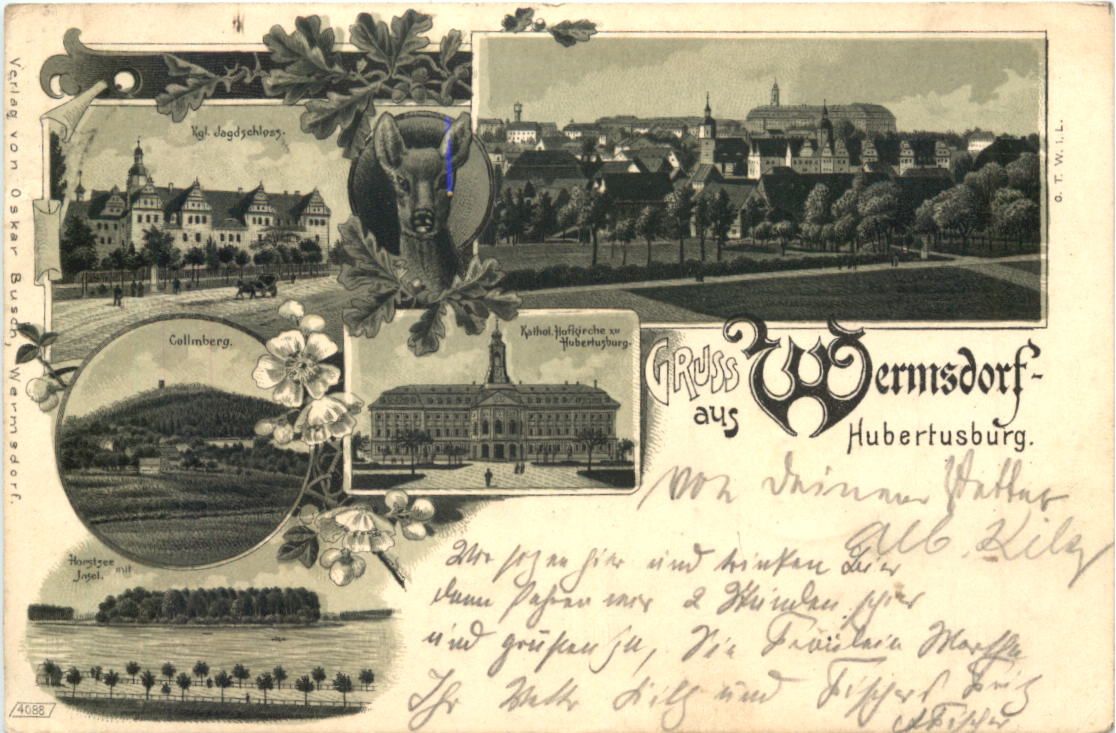 Verlag von Oskar Busch, Wermsdorf.
Kgl. Jagdschloss.
o. T. W. i. L.
Collmberg.
Kathol. Hofkirche zu
Hubertusburg.
GRUSS
aus
Wermsdorf-
Hubertusburg.
von Deinem Vetter
Alb.
Wir hier und trinken Bier
dann fahren wir 2 Stunden
und grüßen Fräulein Martha
Ihr und
Fischer
Horstsee mit
Insel.
4088